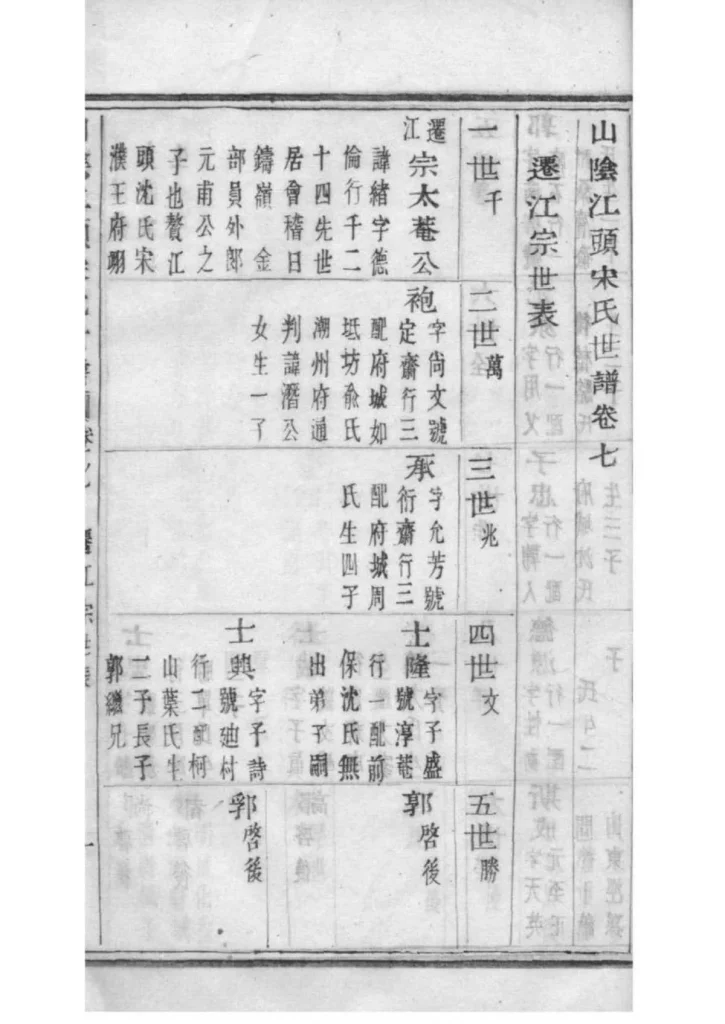 山陰江頭宋氏世譜卷七
遷江宗世表
一世千
遷江宗太菴公
諱緒字德
倫行千二
十四先世
居會稽日
鑄嶺 金
部員外郎
元甫公之
子也贅江
頭沈氏宋
濮王府翊
二世萬
袍
字尚文號
定齋行三
配府城如
坻坊俞氏
潮州府通
判諱潛公
女生一子
三世兆
承
字允芳號
衍齋行三
配府城周
氏生四子
四世文
士隆
字子盛
號淳菴
行一配前
保沈氏無
出弟子嗣
士興
字子詩
號廸村
行二配柯
山葉氏生
二子長子
郭繼兄
五世勝
郭
啓後
郛
啓後
遷江宗世表
一